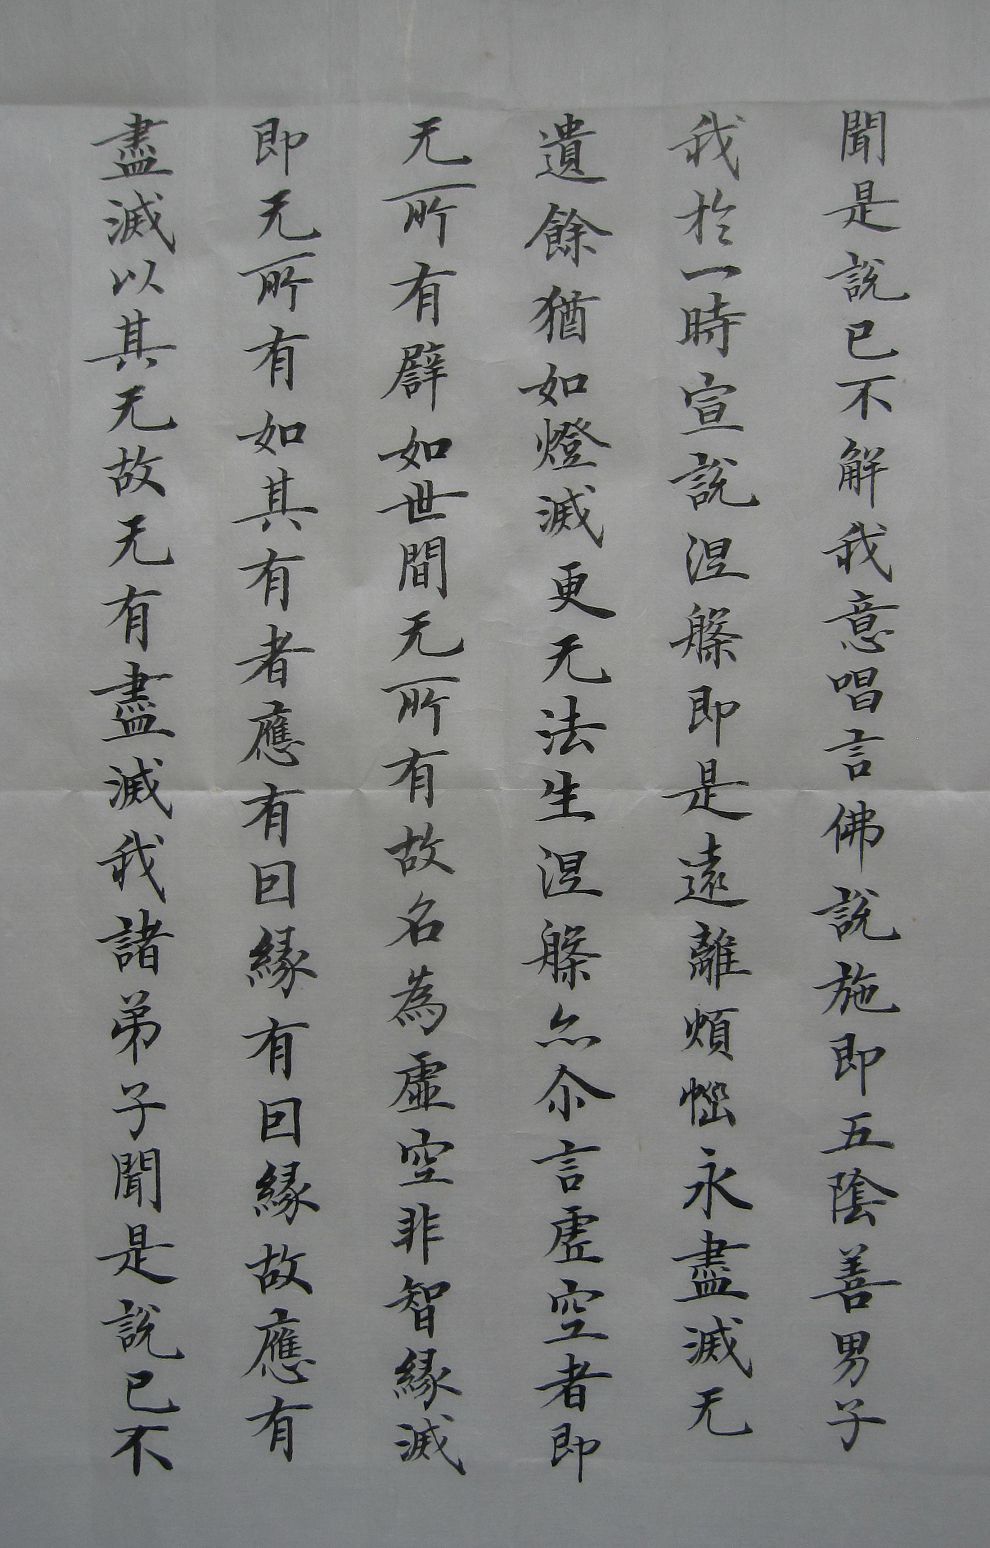 聞是説已不解我意唱言佛説施即五陰善男子
我於一時宣説涅槃即是遠離煩惱永盡滅无
遺餘猶如燈滅更无法生涅槃亦尒言虛空者即
无所有譬如世間无所有故名為虛空非智緣滅
即无所有如其有者應有因緣有因緣故應有
盡滅以其无故无有盡滅我諸弟子聞是説已不